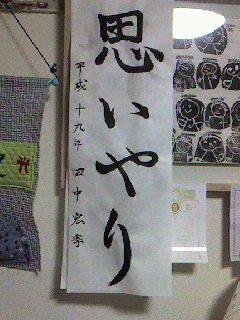 思いやり
平成十九年 田中宏